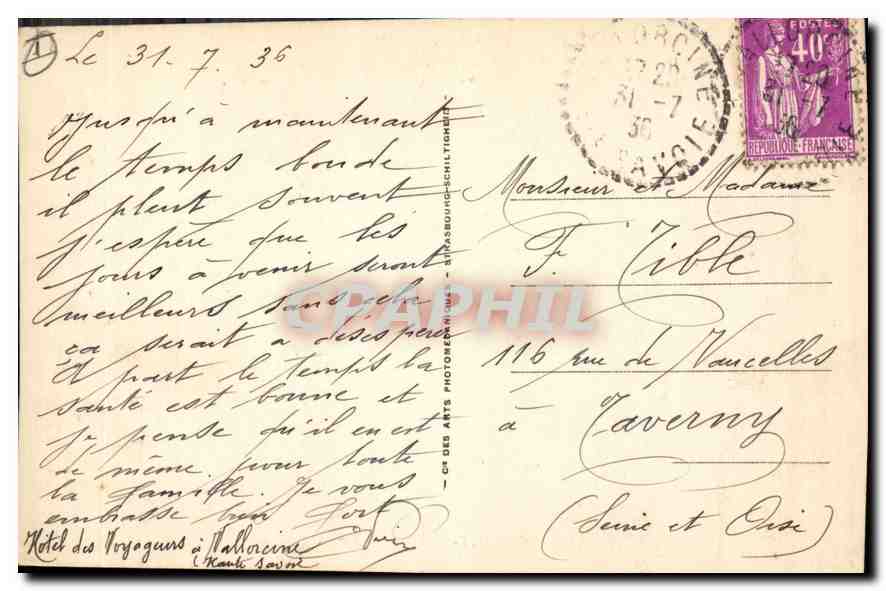 1
Le 31.7.36
Jusqu'à maintenant
le temps boude
il pleut souvent
j'espère que les
jours à venir seront
meilleurs sans cela
ça serait a desespérer
A part le temps la
santé est bonne et
je pense qu'il en est
de même pour toute
la famille. Je vous
embrasse bien fort
Hôtel des Voyageurs à Vallorcine
(Haute Savoie
— Cie DES ARTS PHOTOMECANIQUES — STRASBOURG-SCHILTIGHEIM —
VALLORCINE
31 -7
36
SAVOIE
POSTES
40
REPUBLIQUE FRANÇAISE
Monsieur et Madame
F. Tible
116 rue de Vaucelles
à Taverny
(Seine et Oise)
CPAPHIL